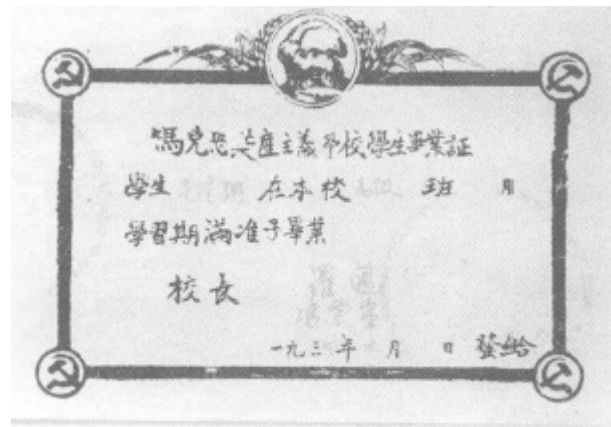 馬克思共產主義學校學生畢業証
學生 在本校 班 月
學習期滿准予畢業
校長
一九三 年 月 日 發給